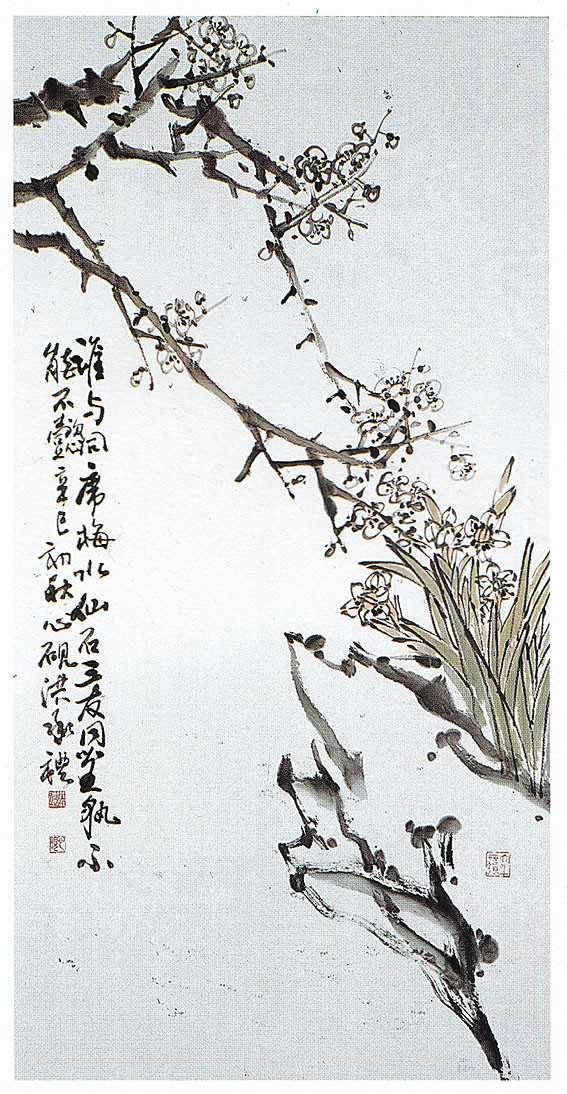 誰与同席梅水仙石三友同坐孰不
能不懿辛巳初秋心硯洪承禮